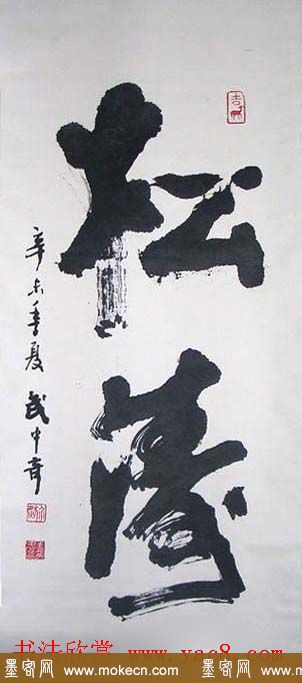 松濤
辛未年夏 武中奇
书法欣赏 www.yac8.com
墨客网 www.mokecn.com 墨客网 www.mokecn.com